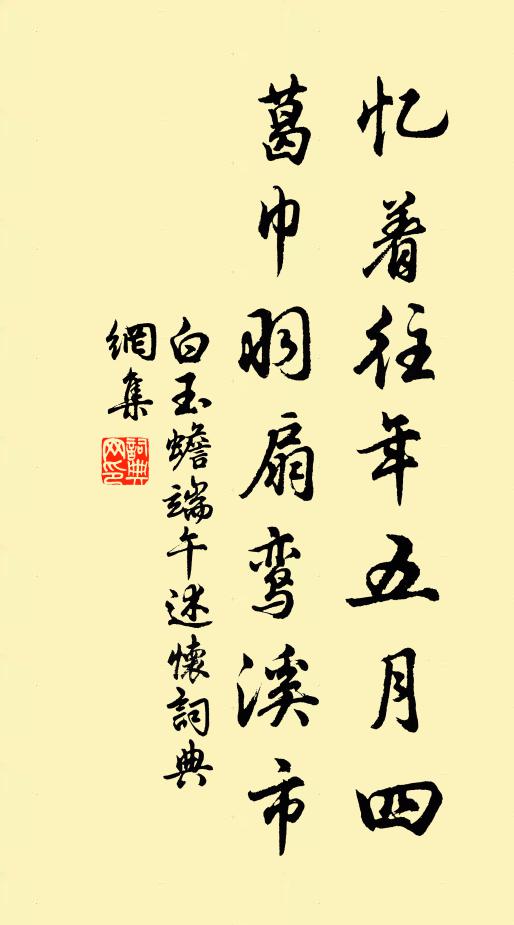 忆着往年五月四
葛巾羽扇鸾溪市
白玉蟾端午述懷詞典
網集
詞典
网印